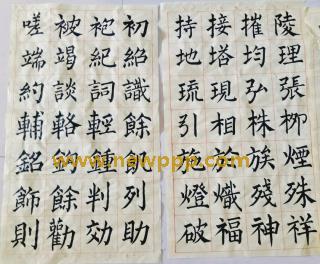 陵理張柳煙殊祥
摧均弘株族殘神
接塔現相於熾福
持地琉引施燈破
初紹識餘飢列助
袍紀詞輕鍾判効
被竭談輅餘勸
嗟端約輔銘飾則
www.newppp.com